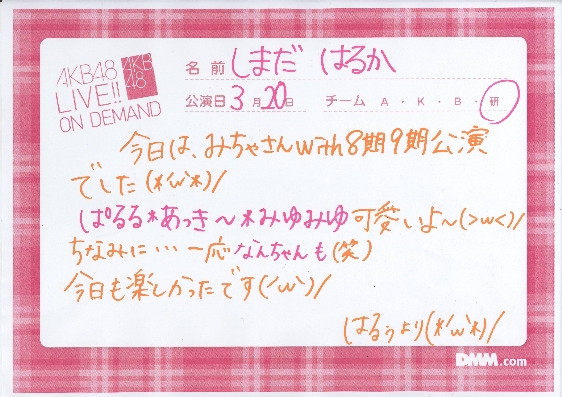 AKB48
LIVE!!
ON DEMAND
AKB
48
名前 しまだ はるか
公演日 3月20日 チーム A・K・B・研
今日は、みちゃさんwith8期9期公演
でした(*'ω'*)/
ぱるる*あっき〜*みゆみゆ可愛いよ〜(>ω<)/
ちなみに…一応なんちゃんも(笑)
今日も楽しかったです('ω')/
はるぅより(*'ω'*)/
DMM.com